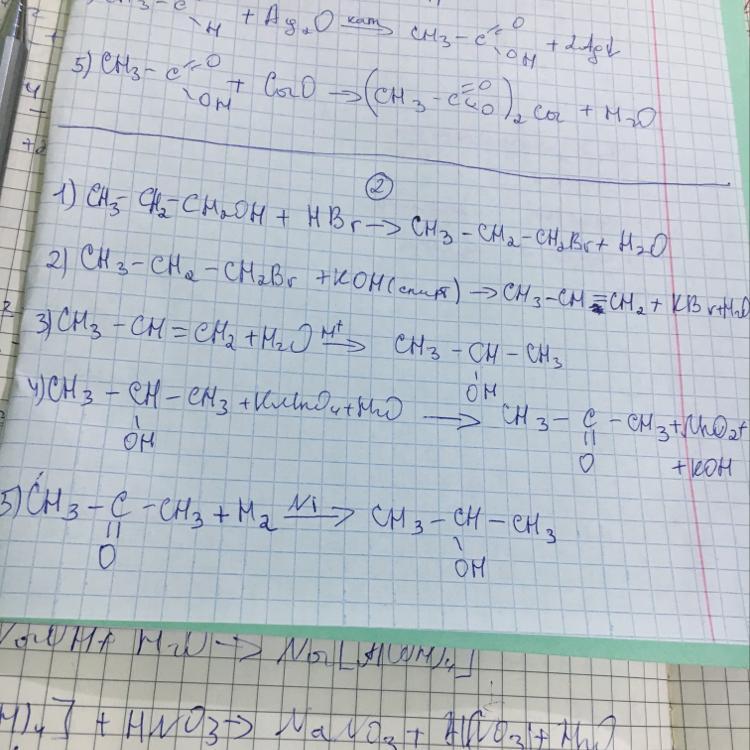 CH3-C + Ag2O кат→ CH3-C =O + 2Ag↓
H OH
5) CH3-C =O + CaO → (CH3-C =O O)2 Ca + H2O
OH
②
1) CH3-CH2-CH2OH + HBr → CH3-CH2-CH2Br + H2O
2) CH3-CH2-CH2Br + KOH(спирт) → CH3-CH=CH2 + KBr+H2O
3) CH3-CH=CH2+H2O H+→ CH3-CH-CH3
OH
4) CH3-CH-CH3+KMnO4+H2O → CH3-C-CH3+MnO2+
OH O +KOH
5) CH3-C-CH3+H2 Ni→ CH3-CH-CH3
O OH
+ H2O →
+ HNO3 → NaNO3 + + H2O